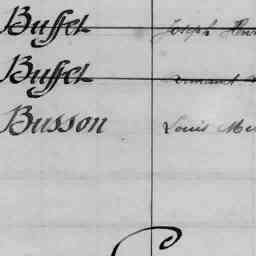 Buffet Joseph
Buffet Armand
Busson Louis